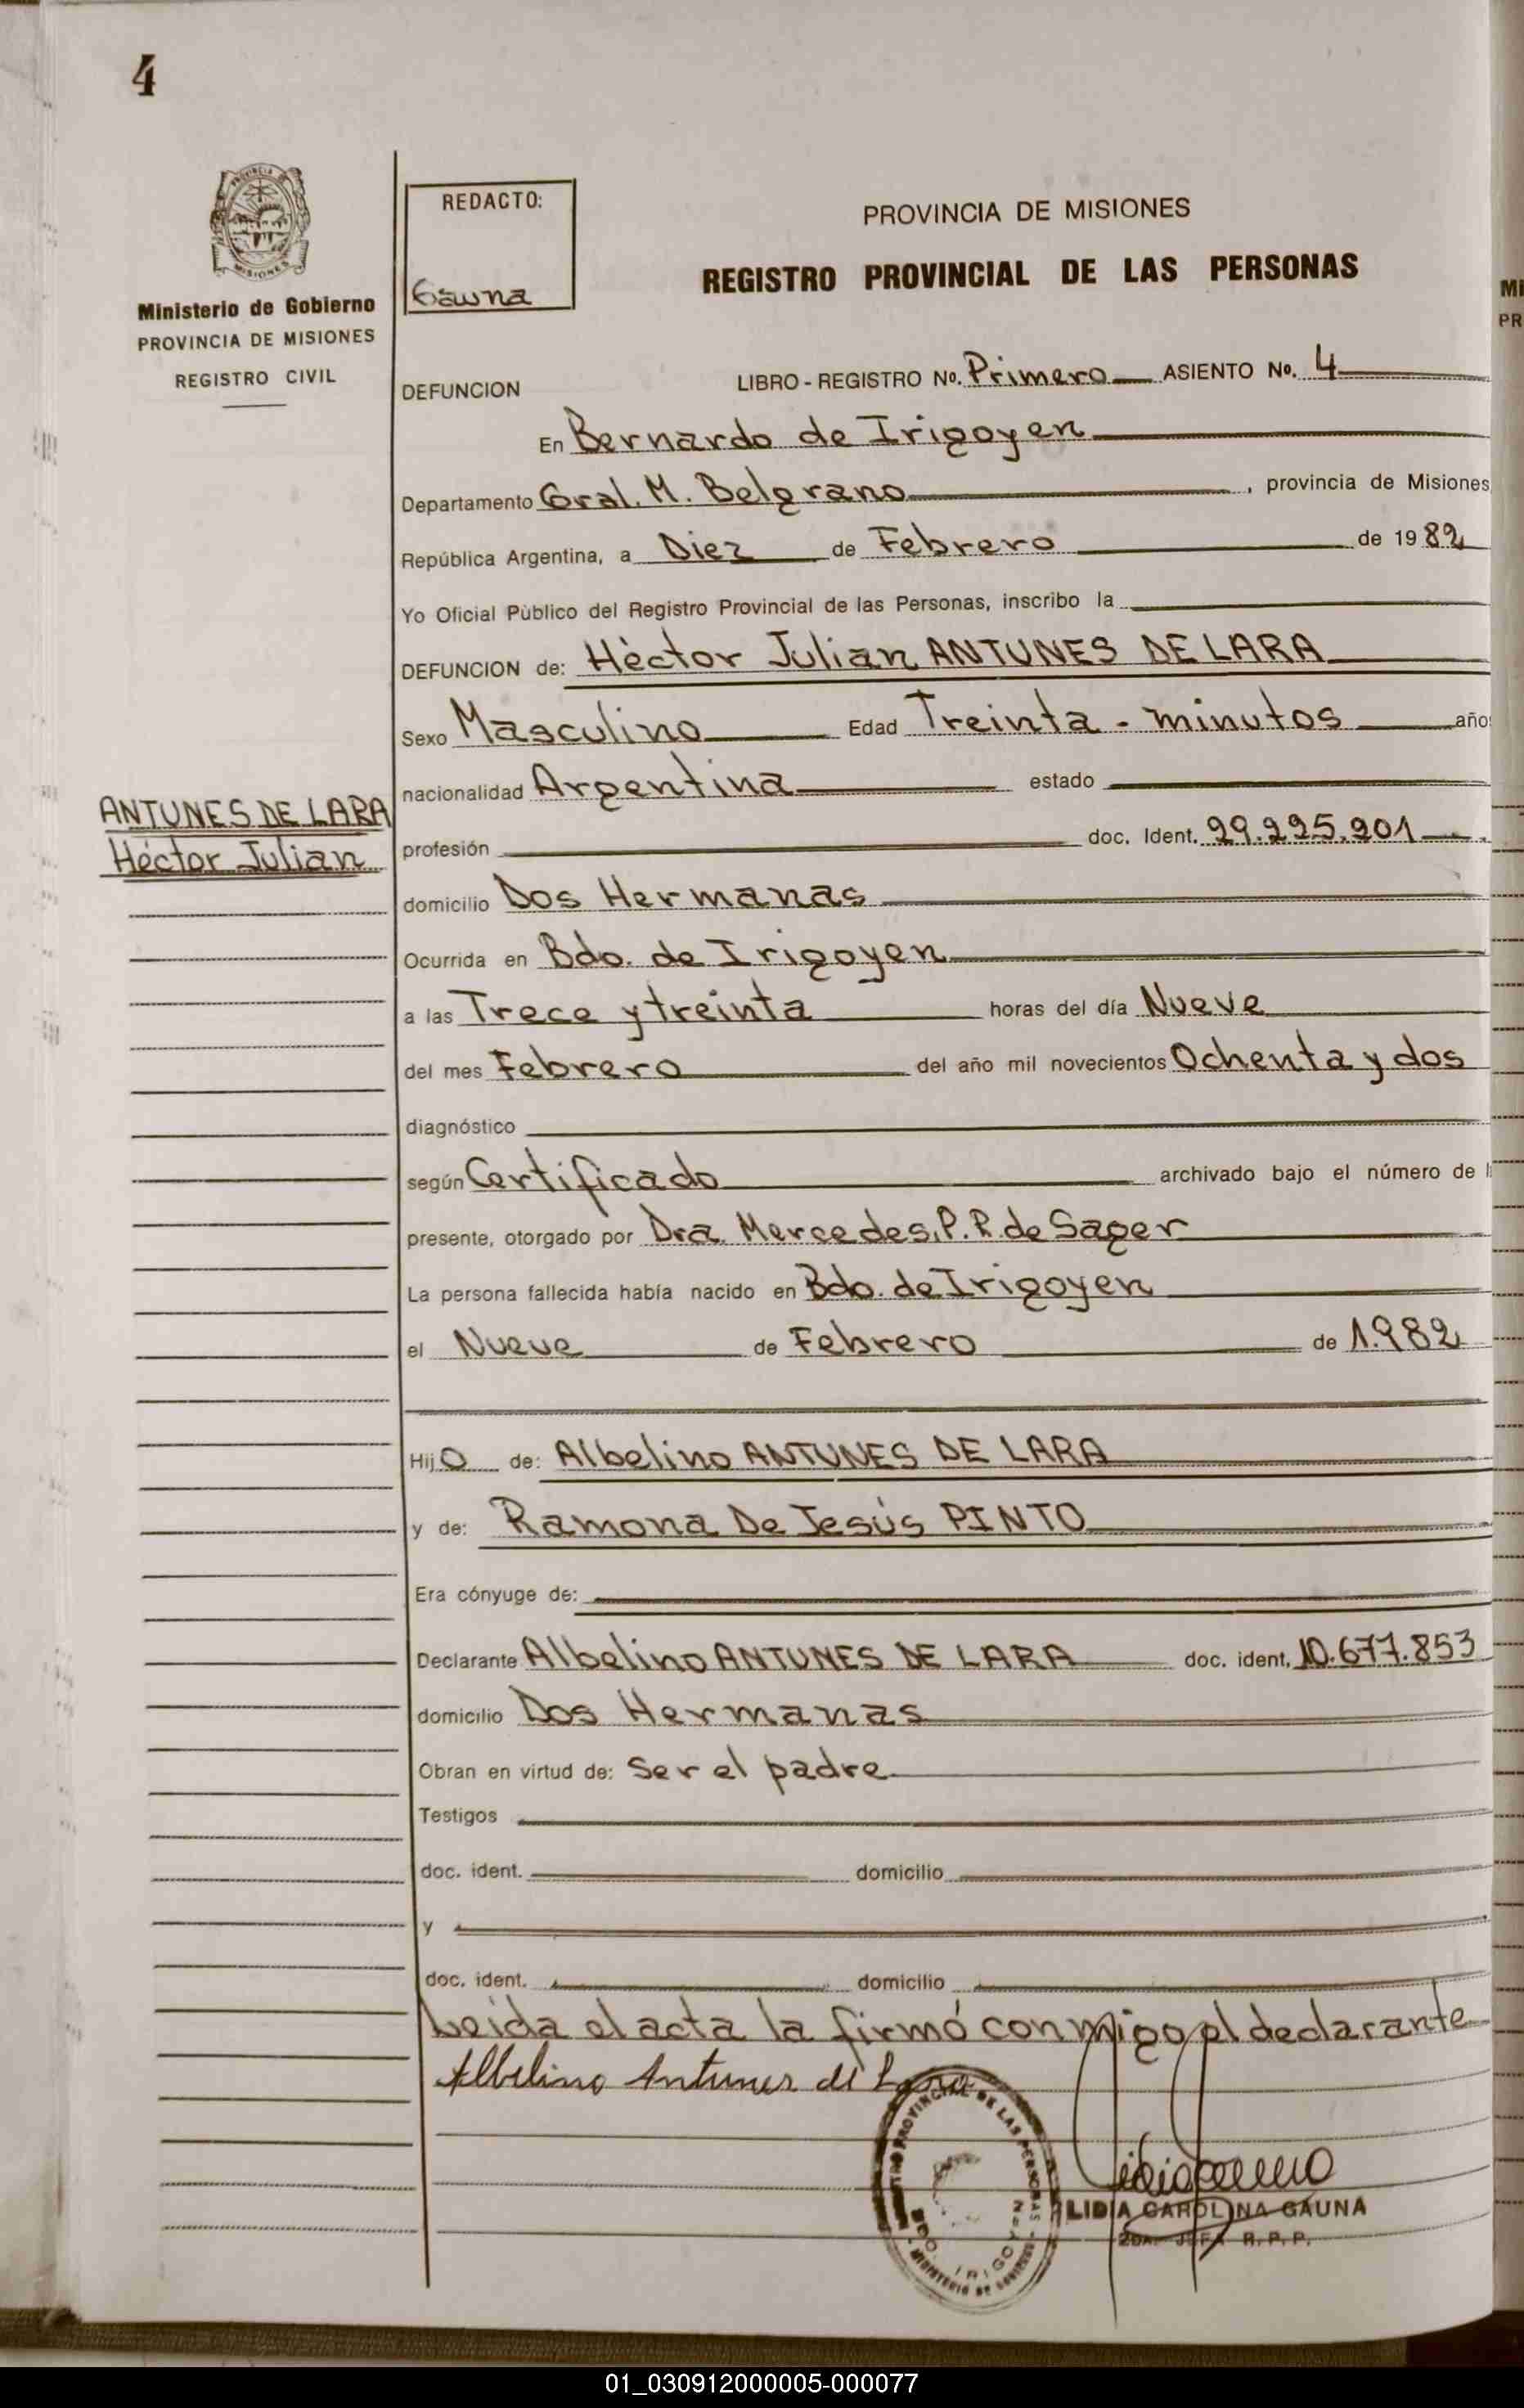 4
PROVINCIA DE
MISIONES
Ministerio de Gobierno
PROVINCIA DE MISIONES
REGISTRO CIVIL
REDACTO:
Gauna
PROVINCIA DE MISIONES
REGISTRO PROVINCIAL DE LAS PERSONAS
DEFUNCION LIBRO - REGISTRO No. Primero ASIENTO No. 4
En Bernardo de Irigoyen
Departamento Gral. M. Belgrano , provincia de Misiones
República Argentina, a Diez de Febrero de 1982
Yo Oficial Pùblico del Registro Provincial de las Personas, inscribo la
DEFUNCION de: Hèctor Julian ANTUNES DE LARA
Sexo Masculino Edad Treinta - minutos año
nacionalidad Argentina estado
ANTUNES DE LARA
Héctor Julian
profesión doc. Ident. 29.225.201
domicilio Dos Hermanas
Ocurrida en Bdo. de Irigoyen
a las Trece y treinta horas del día Nueve
del mes Febrero del año mil novecientos Ochenta y dos
diagnóstico
según Certificado archivado bajo el número de l
presente, otorgado por Dra. Mercedes. P. R. de Sager
La persona fallecida había nacido en Bdo. de Irigoyen
el Nueve de Febrero de 1.982
Hijo de: Albelino ANTUNES DE LARA
y de: Ramona De Jesús PINTO
Era cónyuge de:
Declarante Albelino ANTUNES DE LARA doc. ident. 10.677.853
domicilio Dos Hermanas
Obran en virtud de: Ser el padre
Testigos
doc. ident. domicilio
y
doc. ident. domicilio
Leida el acta la firmó conmigo el declarante
Albelino Antunes de Lara
PROVINCIAL DE LAS PERSONAS
BDO. IRIGOYEN
MINISTERIO DE GOBIERNO
LIDIA CAROLINA GAUNA
2DA. JEFA R. P. P.
Mi
PR
01_030912000005-000077